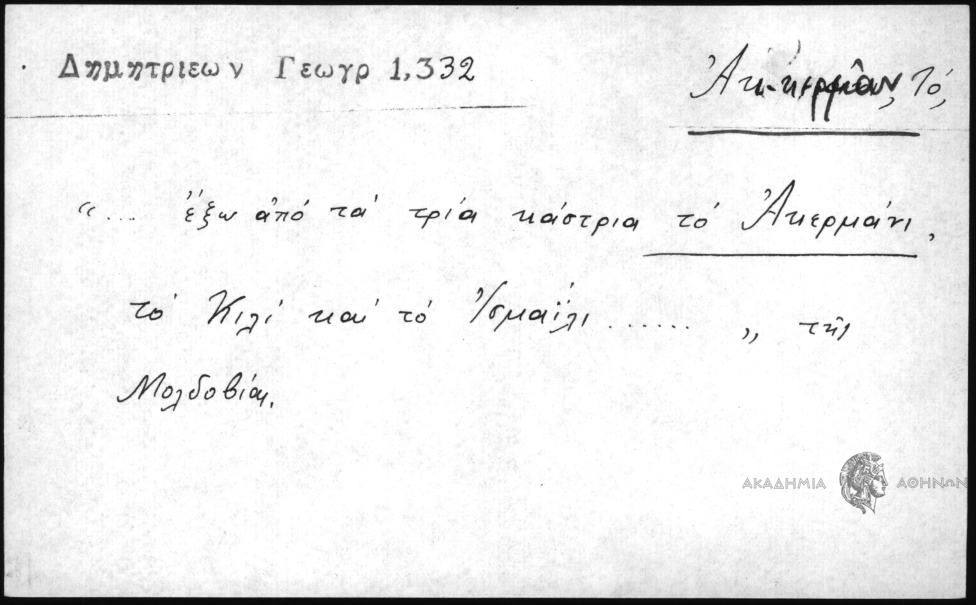 Δημητριεων Γεωγρ 1,332
Ἀκ-κερμᾶν, τό,
"... ἔξω ἀπό τά τρία κάστρια τό Ἀκερμάνι,
τό Κιλί καί τό Ἰσμαΐλι ...... " τῆς
Μολδοβίας.
ΑΚΑΔΗΜΙΑ ΑΘΗΝΩΝ